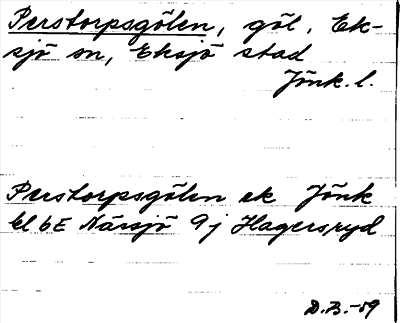 Perstorpsgölen, göl, Ek-
sjö sn, Eksjö stad
Jönk. l.
Perstorpsgölen ek Jönk
bl 6E Nässjö 9j Hagersryd
D.B.-59